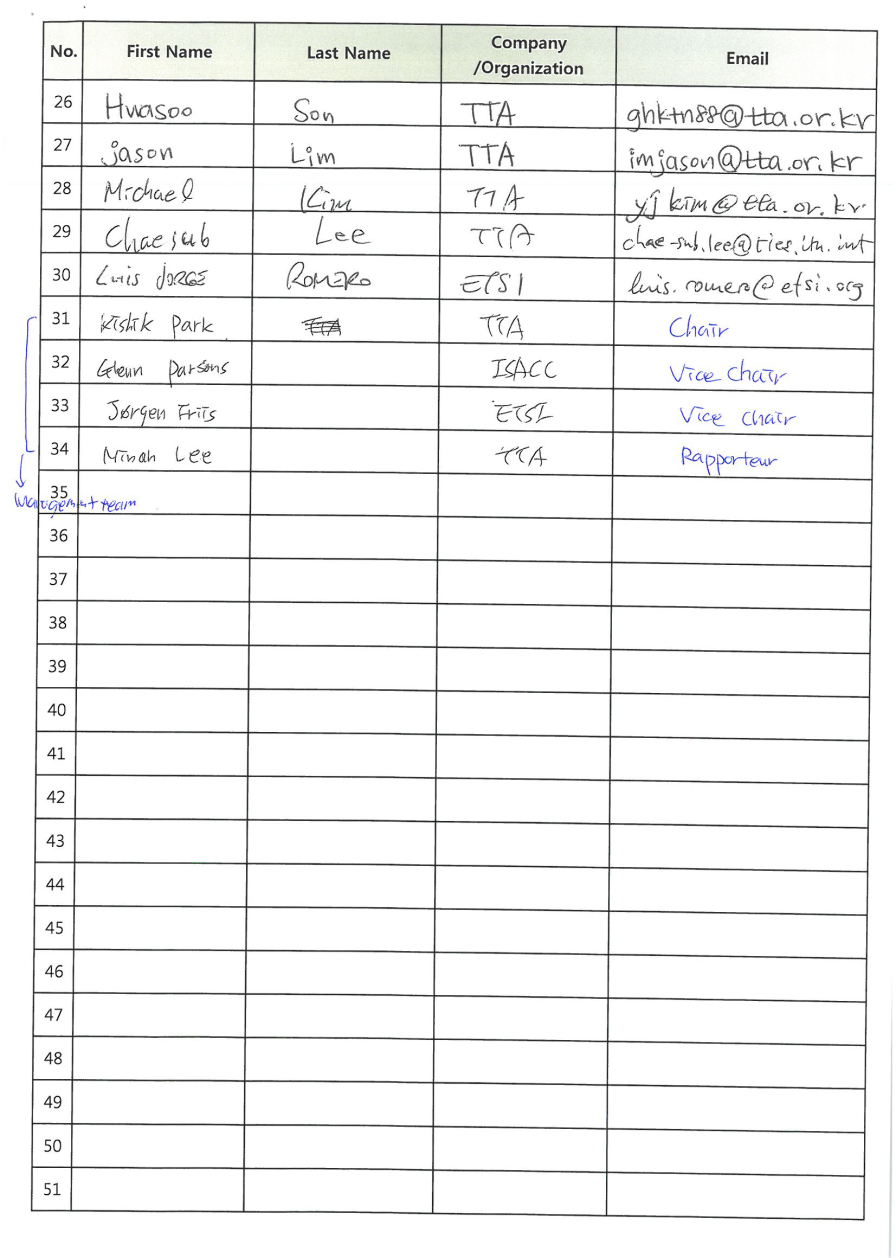 No. First Name Last Name Company /Organization Email
26 Hwasoo Son TTA ghktn88@tta.or.kr
27 jason Lim TTA imjason@tta.or.kr
28 Michael Kim TTA yjkim@tta.or.kr
29 Chaesub Lee TTA chae-sub.lee@ties.itu.int
30 Luis JORGE ROMERO ETSI luis.romero@etsi.org
31 Kishik Park TTA Chair
32 Glenn Parsons ISACC Vice Chair
33 Jørgen Friis ETSI Vice Chair
34 Minah Lee TTA Rapporteur
35
Management team
36
37
38
39
40
41
42
43
44
45
46
47
48
49
50
51